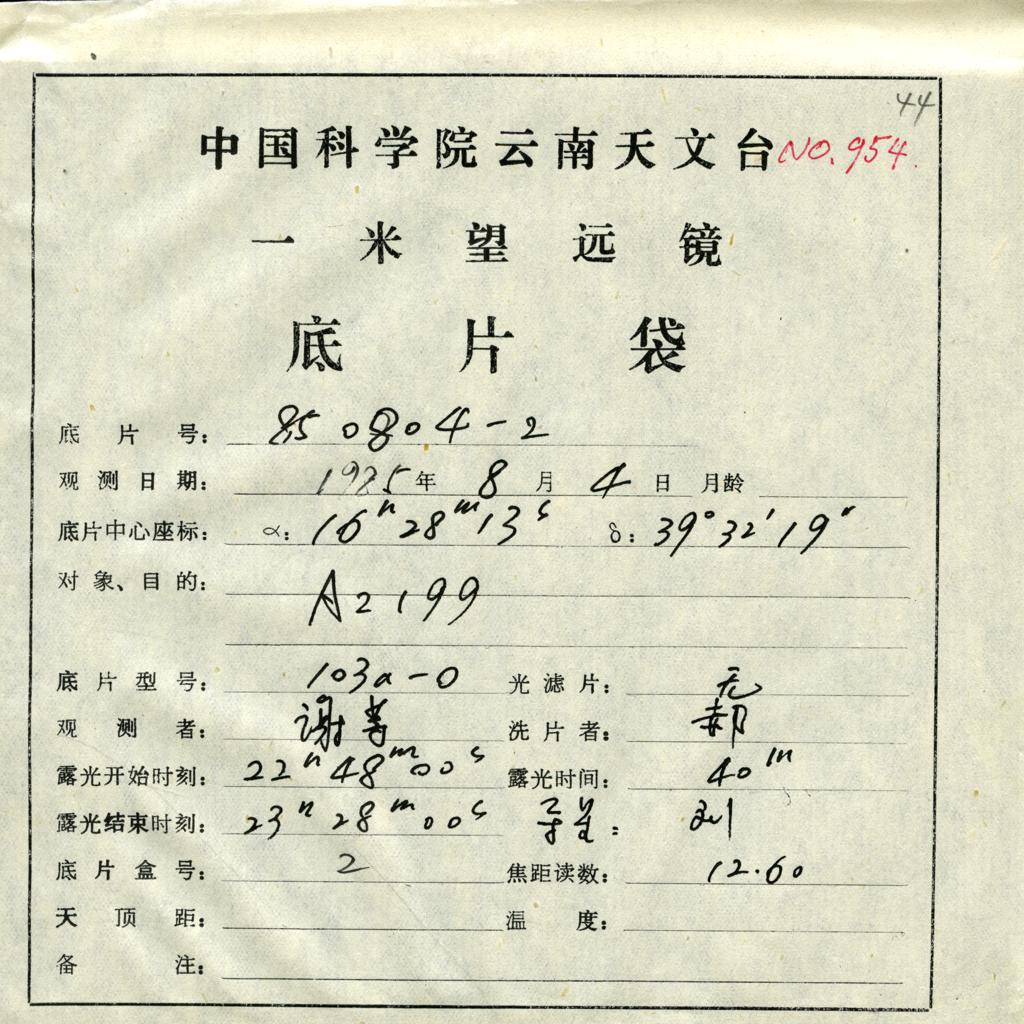 44
中国科学院云南天文台 NO.954.
一米望远镜
底片袋
底片号： 850804-2
观测日期： 1985年 8月 4日 月龄
底片中心座标： α： 16h 28m 13s δ： 39° 32′ 19″
对象、目的： A2199
底片型号： 103a-O 光滤片： 无
观测者： 谢 洗片者： 郝
露光开始时刻： 22h 48m 00s 露光时间： 40m
露光结束时刻： 23h 28m 00s 导星： 刘
底片盒号： 2 焦距读数： 12.60
天顶距： 温度：
备注：